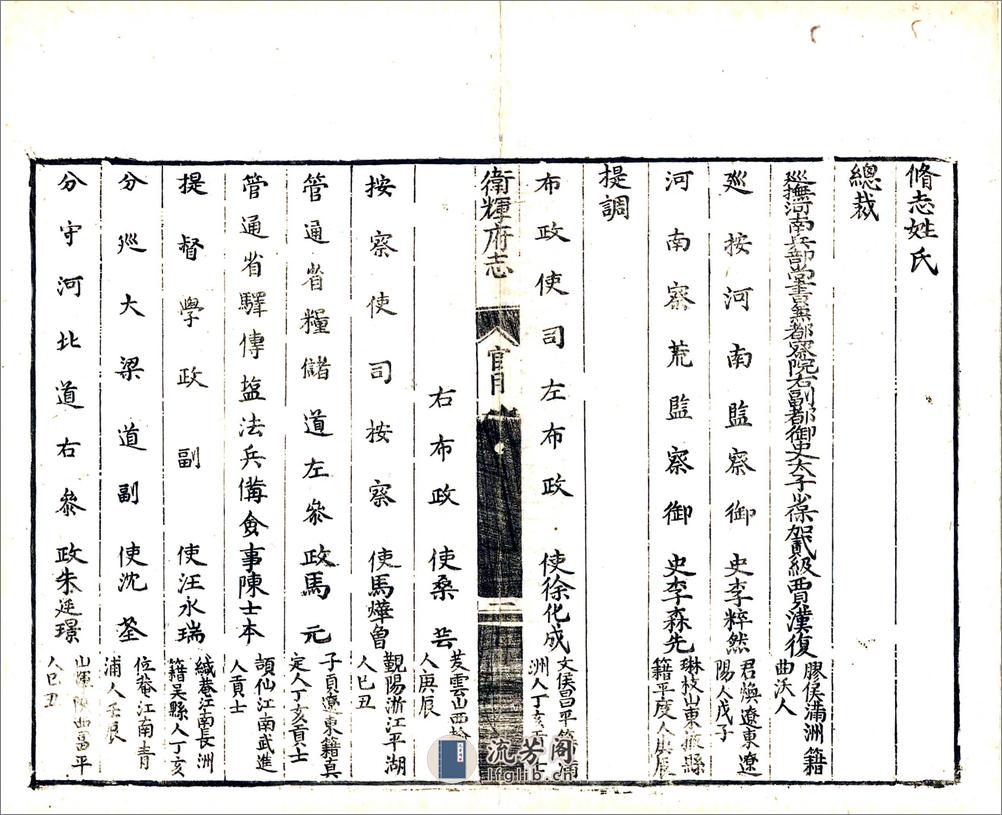 脩志姓氏
總裁
廵撫河南兵部尚書兼都察院右副都御史太子少保加貳級賈漢復 膠侯滿洲籍曲沃人
廵按河南監察御史李粹然 君煥遼東遼陽人戊子
河南察荒監察御史李森先 琳枝山東掖縣籍平度人庚辰
提調
布政使司左布政使徐化成 文侯昌平籍浦洲人丁亥貢士
衛輝府志 官目 一
右布政使桑芸 山西榆人庚辰
按察使司按察使馬燁曾 覲陽浙江平湖人巳丑
管通省糧儲道左叅政馬元 子貞遼東籍真定人丁亥貢士
管通省驛傳塩法兵備僉事陳士本 頡仙江南武進人貢士
提督學政副使汪永瑞 緘菴江南長洲籍吳縣人丁亥
分廵大梁道副使沈荃 位菴江南青浦人壬辰
分守河北道右叅政朱廷璟 山輝陝西富平人巳丑
流芳阁
lfglib.cn